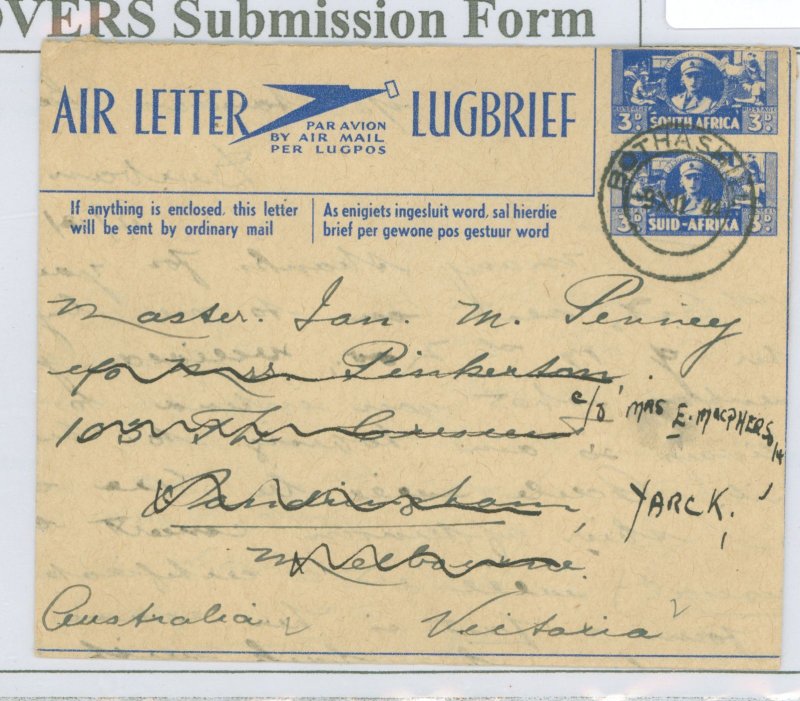 OVERS Submission Form
AIR LETTER
PAR AVION
BY AIR MAIL
PER LUGPOS
LUGBRIEF
3D SOUTH AFRICA 3D
3D SUID-AFRIKA 3D
If anything is enclosed, this letter
will be sent by ordinary mail
As enigiets ingesluit word, sal hierdie
brief per gewone pos gestuur word
Master. Ian. M. Penney
c/o Mrs. Pinkerton.
c/o Mrs E. MacPherson
103 The
Sandringham
Yarck.
Melbourne.
Australia Victoria